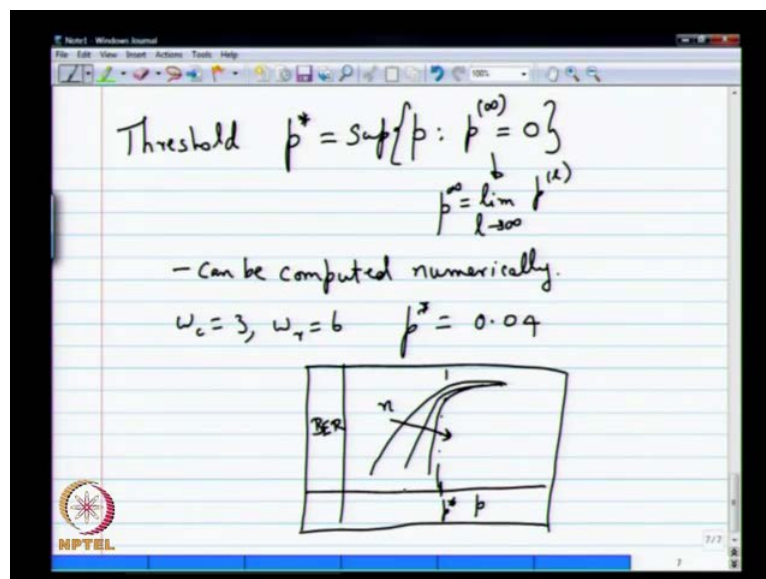 Note1 - Windows Journal
File Edit View Insert Actions Tools Help
100%
Threshold p* = Sup{p : p^(∞) = 0}
p^∞ = lim p^(l)
l→∞
- Can be computed numerically.
w_c = 3, w_r = 6 p* = 0.04
n
BER
p* p
NPTEL
7/7
7